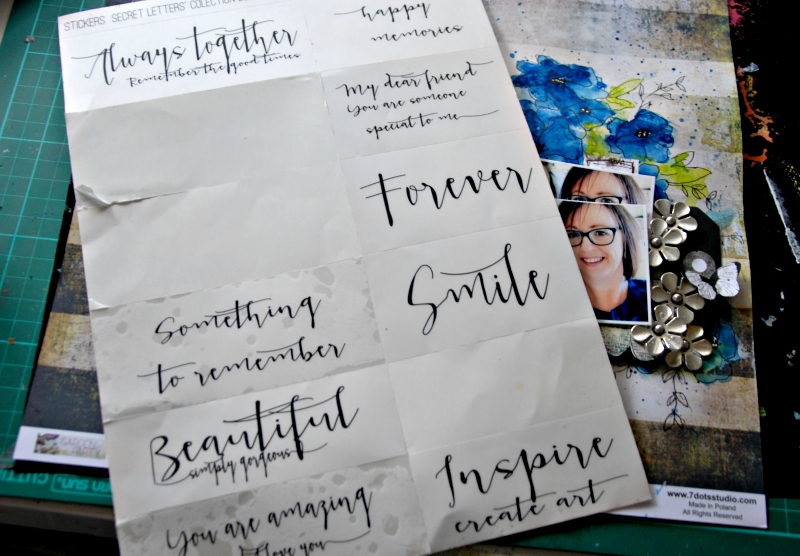 STICKERS SECRET LETTERS' COLECTION
Always together
Remember the good times
happy
memories
My dear friend
You are someone
special to me
Forever
Smile
Something
to remember
Beautiful
simply gorgeous
You are amazing
I love you
Inspire
create art
www.7dotsstudio.com
Made in Poland
All Rights Reserved